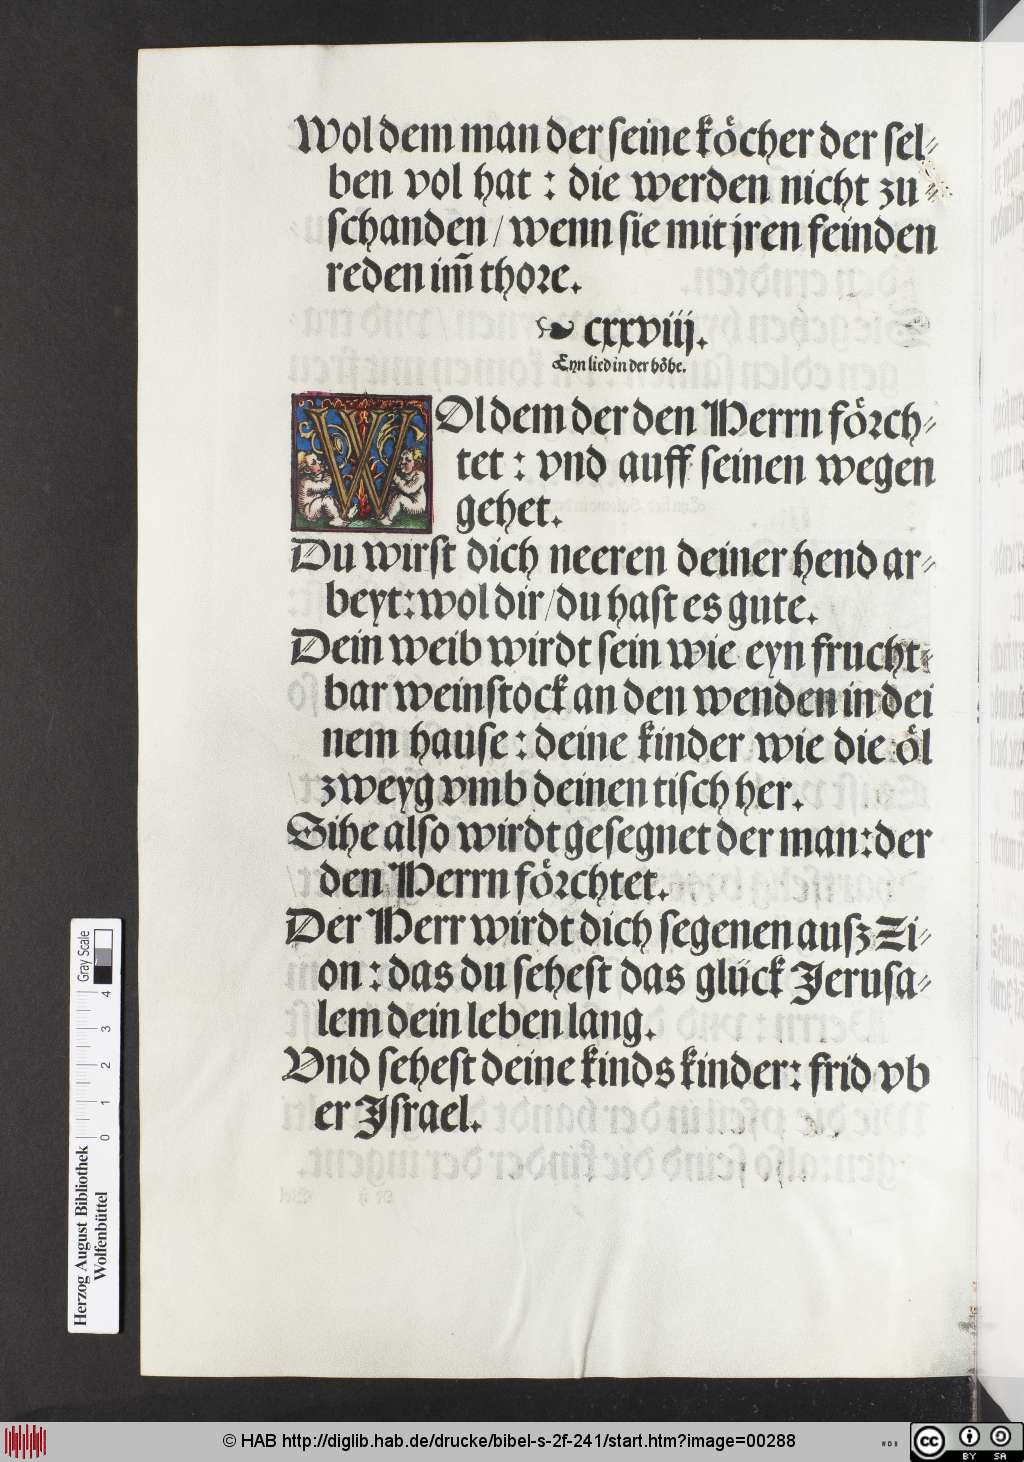 Wol dem man der seine köcher der sel⸗
ben vol hat : die werden nicht zu⸗
schanden / wenn sie mit jren feinden
reden im̄ thore.
❧ cxxviij.
Eyn lied in der höhe.
WOl dem der den Herrn förch⸗
tet : vnd auff seinen wegen
gehet.
Du wirst dich neeren deiner hend ar⸗
beyt: wol dir/du hast es gute.
Dein weib wirdt sein wie eyn frucht⸗
bar weinstock an den wenden in dei
nem hause : deine kinder wie die öl
zweyg vmb deinen tisch her.
Sihe also wirdt gesegnet der man: der
den Herrn förchtet.
Der Herr wirdt dich segenen ausz Zi⸗
on : das du sehest das glück Jerusa⸗
lem dein leben lang.
Vnd sehest deine kinds kinder: frid vb
er Jsrael.
Gray Scale
0 1 2 3 4
Herzog August Bibliothek
Wolfenbüttel
© HAB http://diglib.hab.de/drucke/bibel-s-2f-241/start.htm?image=00288
WDB
cc BY SA